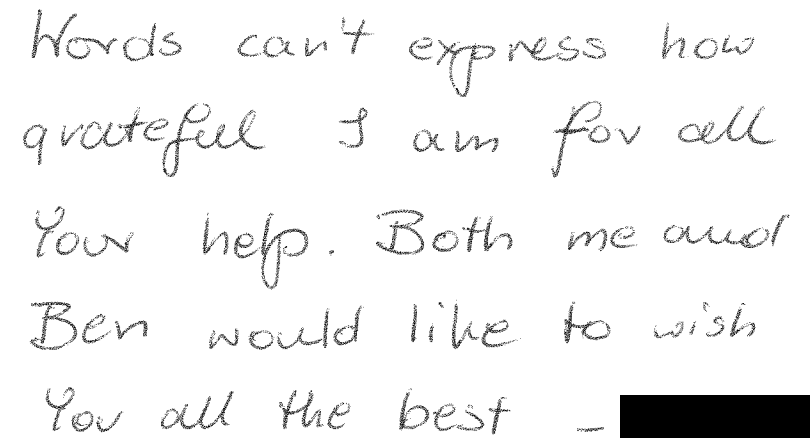 Words can't express how
grateful I am for all
Your help. Both me and
Ben would like to wish
You all the best -